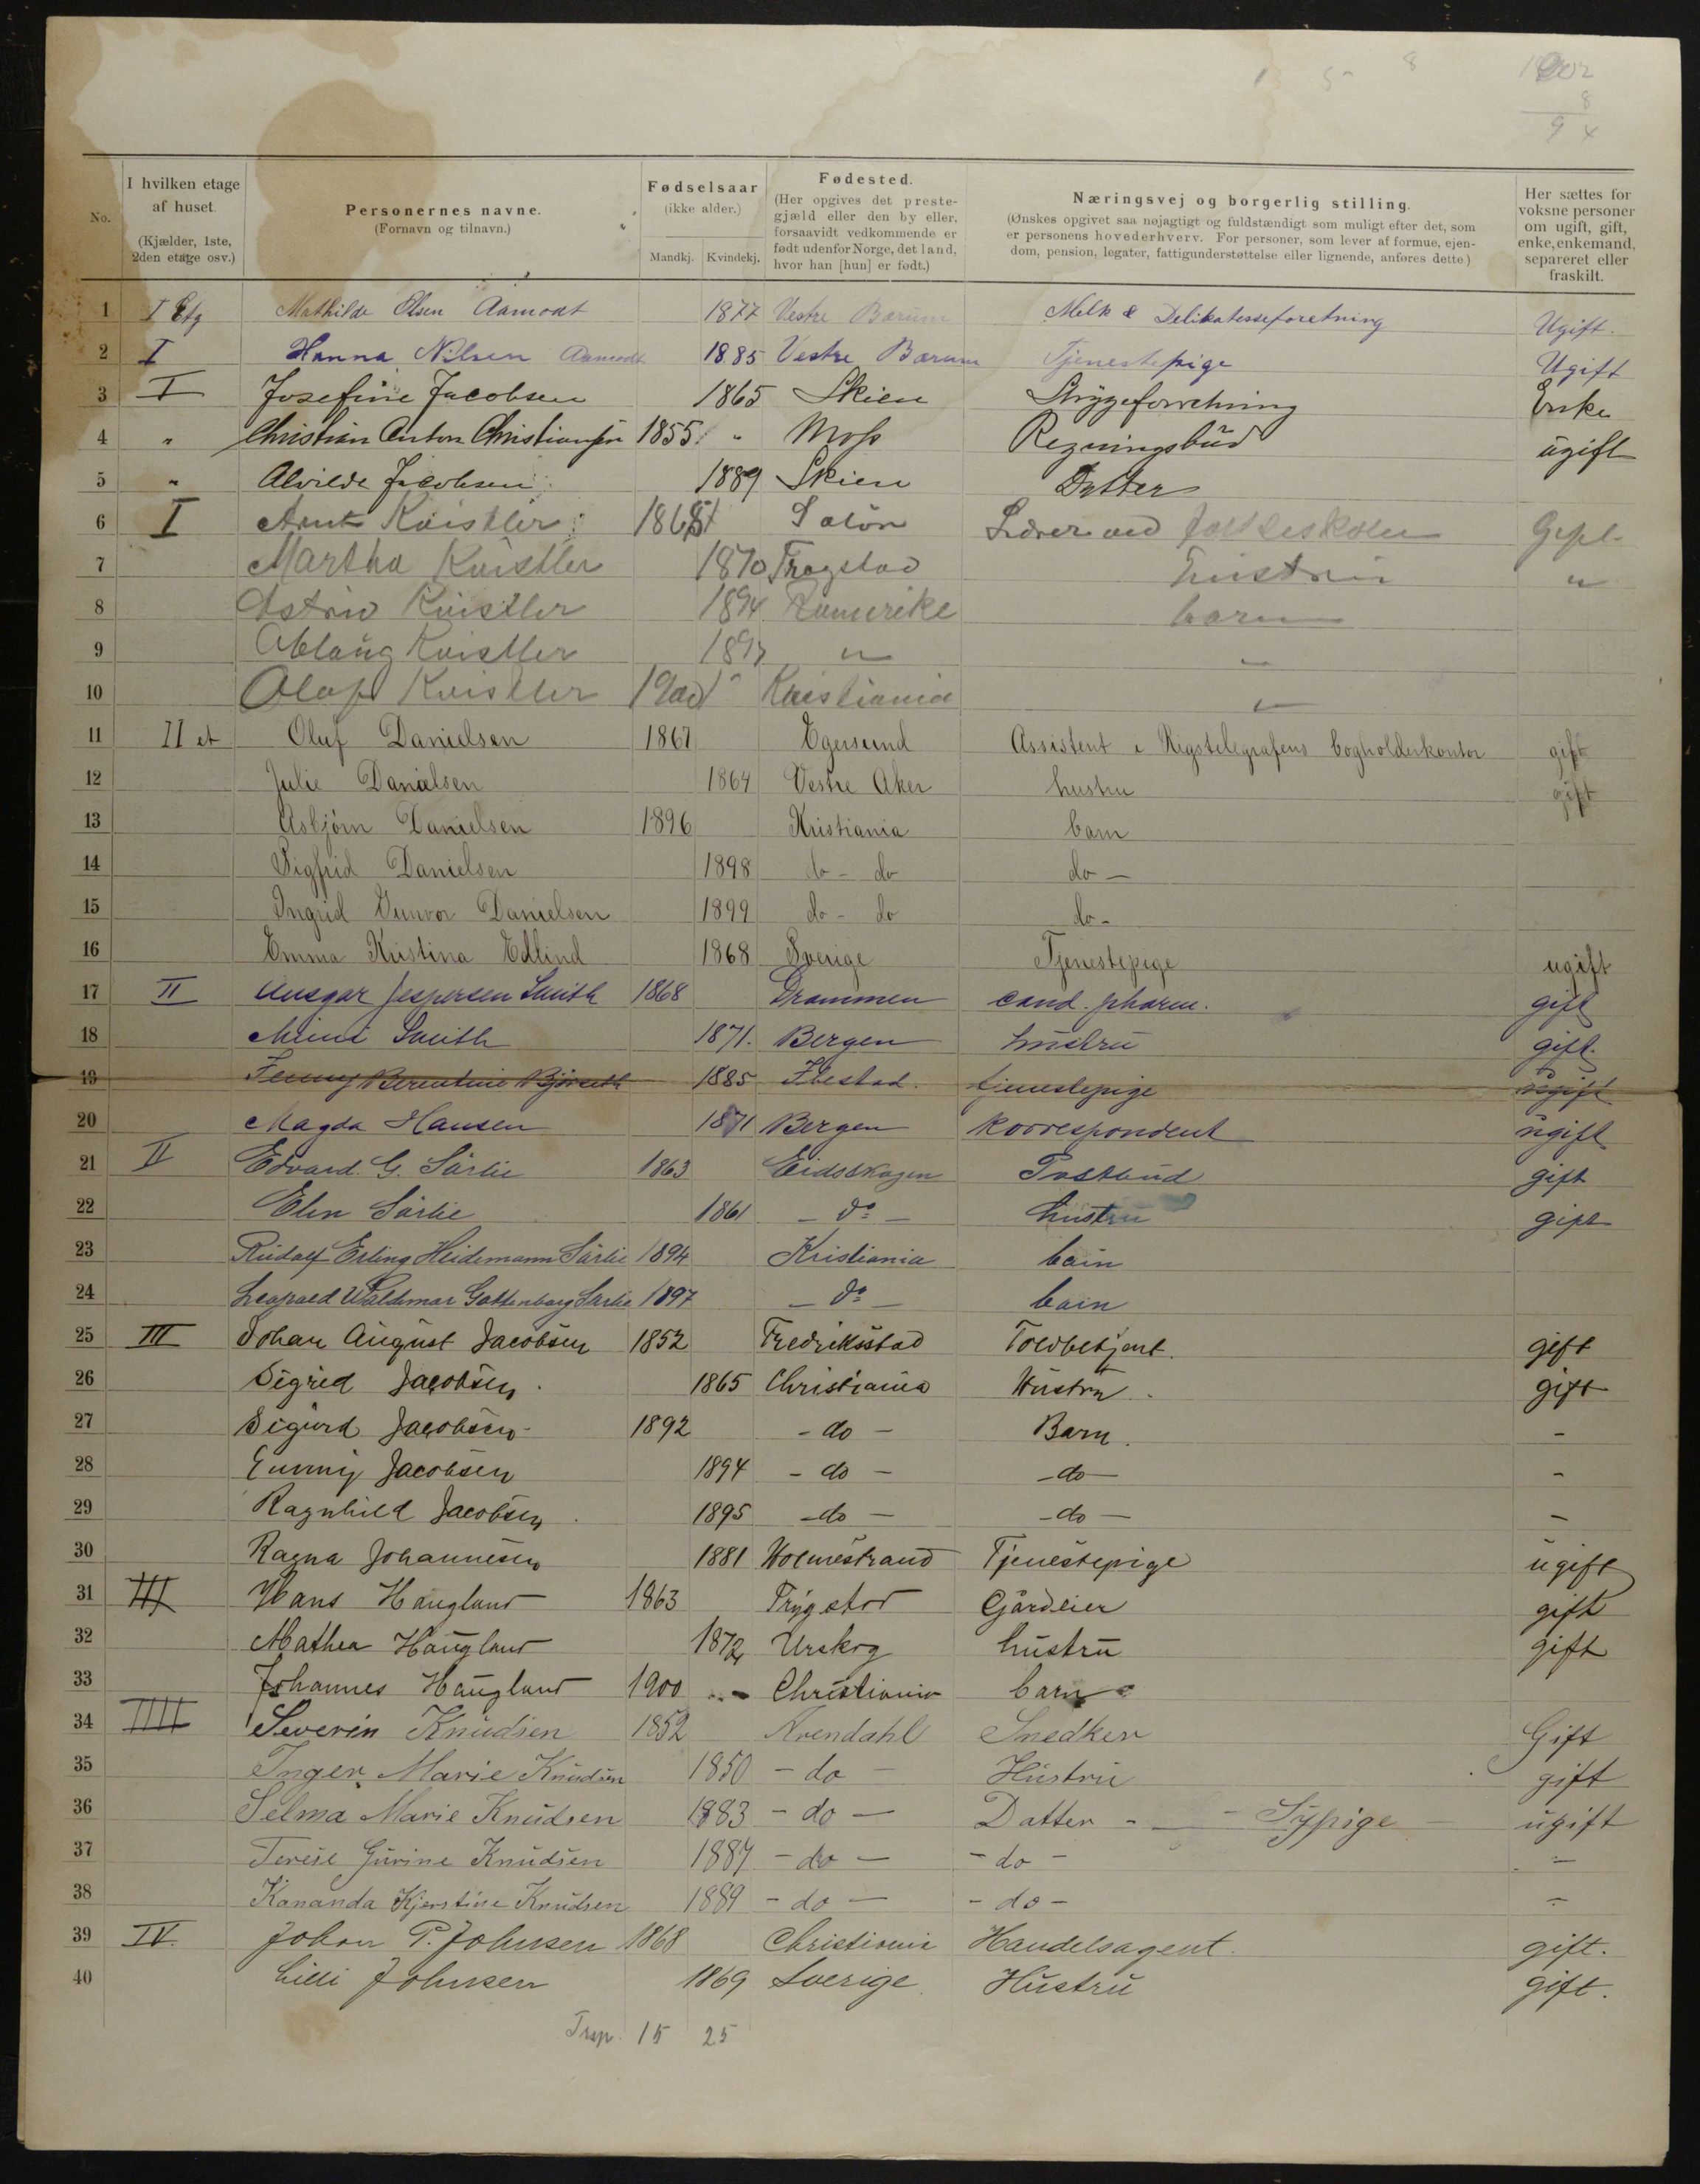 1902
8
9 4
1 5 8
No.
I hvilken etage af huset. (Kjælder, 1ste, 2den etage osv.)
Personernes navne. (Fornavn og tilnavn.)
Fødselsaar (ikke alder.) Mandkj. Kvindekj.
Fødested. (Her opgives det prestegjæld eller den by eller, forsaavidt vedkommende er født udenfor Norge, det land, hvor han [hun] er født.)
Næringsvej og borgerlig stilling. (Ønskes opgivet saa nøjagtigt og fuldstændigt som muligt efter det, som er personens hovederhverv. For personer, som lever af formue, ejendom, pension, legater, fattigunderstøttelse eller lignende, anføres dette)
Her sættes for voksne personer om ugift, gift, enke, enkemand, separeret eller fraskilt.
1 I Etg Mathilde Olsen Aamodt 1877 Vestre Bærum Melk & Delikatesseforetning Ugift.
2 I Hanna Nilsen Aamodt 1885 Vestre Bærum Tjenestepige Ugift
3 I Josefine Jacobsen 1865 Skien Strygeforretning Enke
4 " Christian Anton Christiansen 1855 " Moss Regningsbud ugift
5 " Alvilde Jacobsen 1889 Skien Datter
6 I Kvistler Solør Lærer ved Folkeskolen Gift
7 Martha Kvistler 1870 Trøgstad hustru "
8 Astrid Kvistler 1894 Romerike barn
9 Aslaug Kvistler 1897 " "
10 Olaf Kvistler 1900 Kristiania "
11 II et Oluf Danielsen 1867 Egersund Assistent i Rigstelegrafens bogholderkontor gift
12 Julie Danielsen 1864 Vestre Aker hustru gift
13 Asbjörn Danielsen 1896 Kristiania barn
14 Sigfrid Danielsen 1898 do - do do -
15 Ingrid Gunvor Danielsen 1899 do - do do -
16 Emma Kristina Edlind 1868 Sverige Tjenestepige ugift
17 II Ansgar Jespersen Smith 1868 Drammen cand. pharm. gift
18 Mimi Smith 1871. Bergen hustru gift.
19 Jenny Berentine Björseth 1885 Ibestad. tjenestepige ugift
20 Magda Hansen 1871 Bergen korrespondent ugift
21 II Edvard G. Sörlie 1863 Eidskogen Postbud gift
22 Elen Sörlie 1861 - do - hustru gift
23 Rudolf Erling Heidemann Sörlie 1894 Kristiania barn
24 Leopold Waldemar Gottenborg Sörlie 1897 - do - barn
25 III Johan August Jacobsen 1852 Fredriksstad Toldbetjent. gift
26 Sigrid Jacobsen. 1865 Christiania Hustru. gift
27 Sigurd Jacobsen 1892 - do - Barn. -
28 Jacobsen 1894 - do - - do - -
29 Ragnhild Jacobsen 1895 - do - - do - -
30 Ragna Johannesen 1881 Holmestrand Tjenestepige ugift
31 III Hans Haugland 1863 Trygstad Gårdeier gift
32 Mathea Haugland 1872 Urskog hustru gift
33 Johannes Haugland 1900 " Christiania barn
34 IIII Severin Knudsen 1852 Arendahl Snedker Gift
35 Inger Marie Knudsen 1850 - do - Hustru gift
36 Selma Marie Knudsen 1883 - do - Datter - - Sypige - ugift
37 Terese Gurine Knudsen 1887 - do - - do - -
38 Kananda Kjerstine Knudsen 1889 - do - - do - -
39 IV. Johan P. Johnsen 1868 Christiania Handelsagent. gift.
40 Lilli Johnsen 1869 Sverige. Hustru gift.
Trsp. 15 25